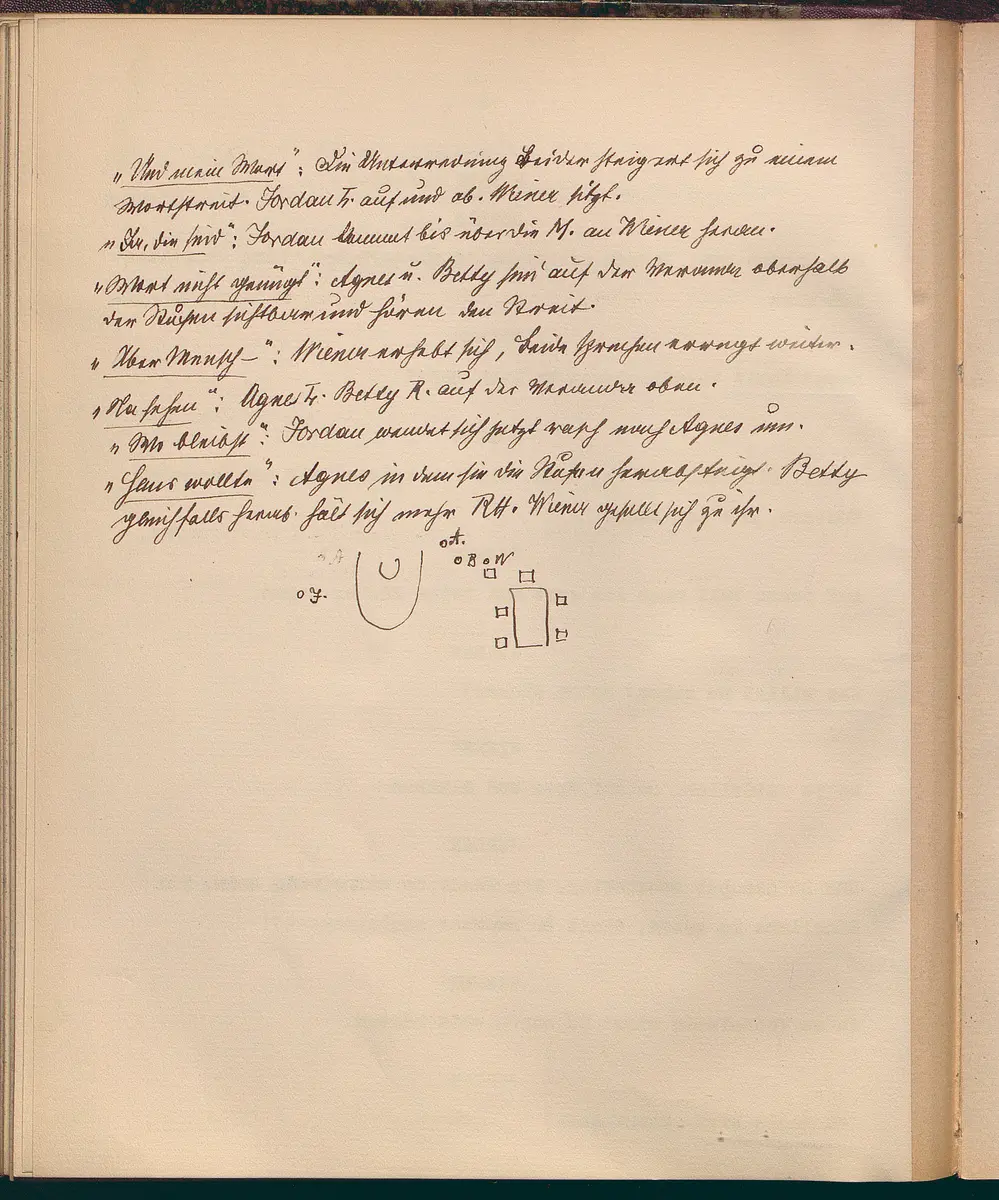 „Und mein Wort“: Die Unterredung Beider steigert sich zu einem
Wortstreit. Jordan L. auf und ab. Wiener sitzt.
„Ja, die sind“: Jordan kommt bis über die M. an Wiener heran.
„Wort nicht genügt“: Agnes u. Betty sind auf der Veranda oberhalb
der Stufen sichtbar und hören den Streit.
„Aber Mensch –“: Wiener erhebt sich, Beide sprechen erregt weiter.
„Na sehen“: Agnes L. Betty R. auf der Veranda oben.
„Wo bleibst“: Jordan wendet sich jetzt rasch nach Agnes um.
„Hans wollte“: Agnes in dem sie die Stufen herabsteigt. Betty
gleichfalls herab. hält sich mehr RH. Wiener gesellt sich zu ihr.
A
A.
B W
J.